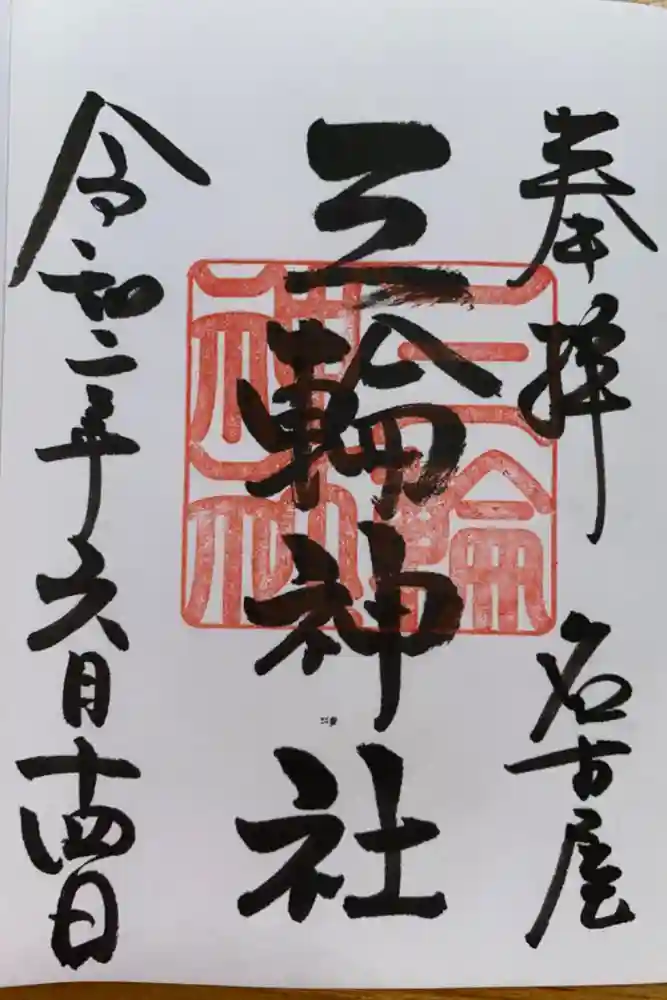 奉拝 名古屋
三輪神社
三輪神社
令和二年六月十四日